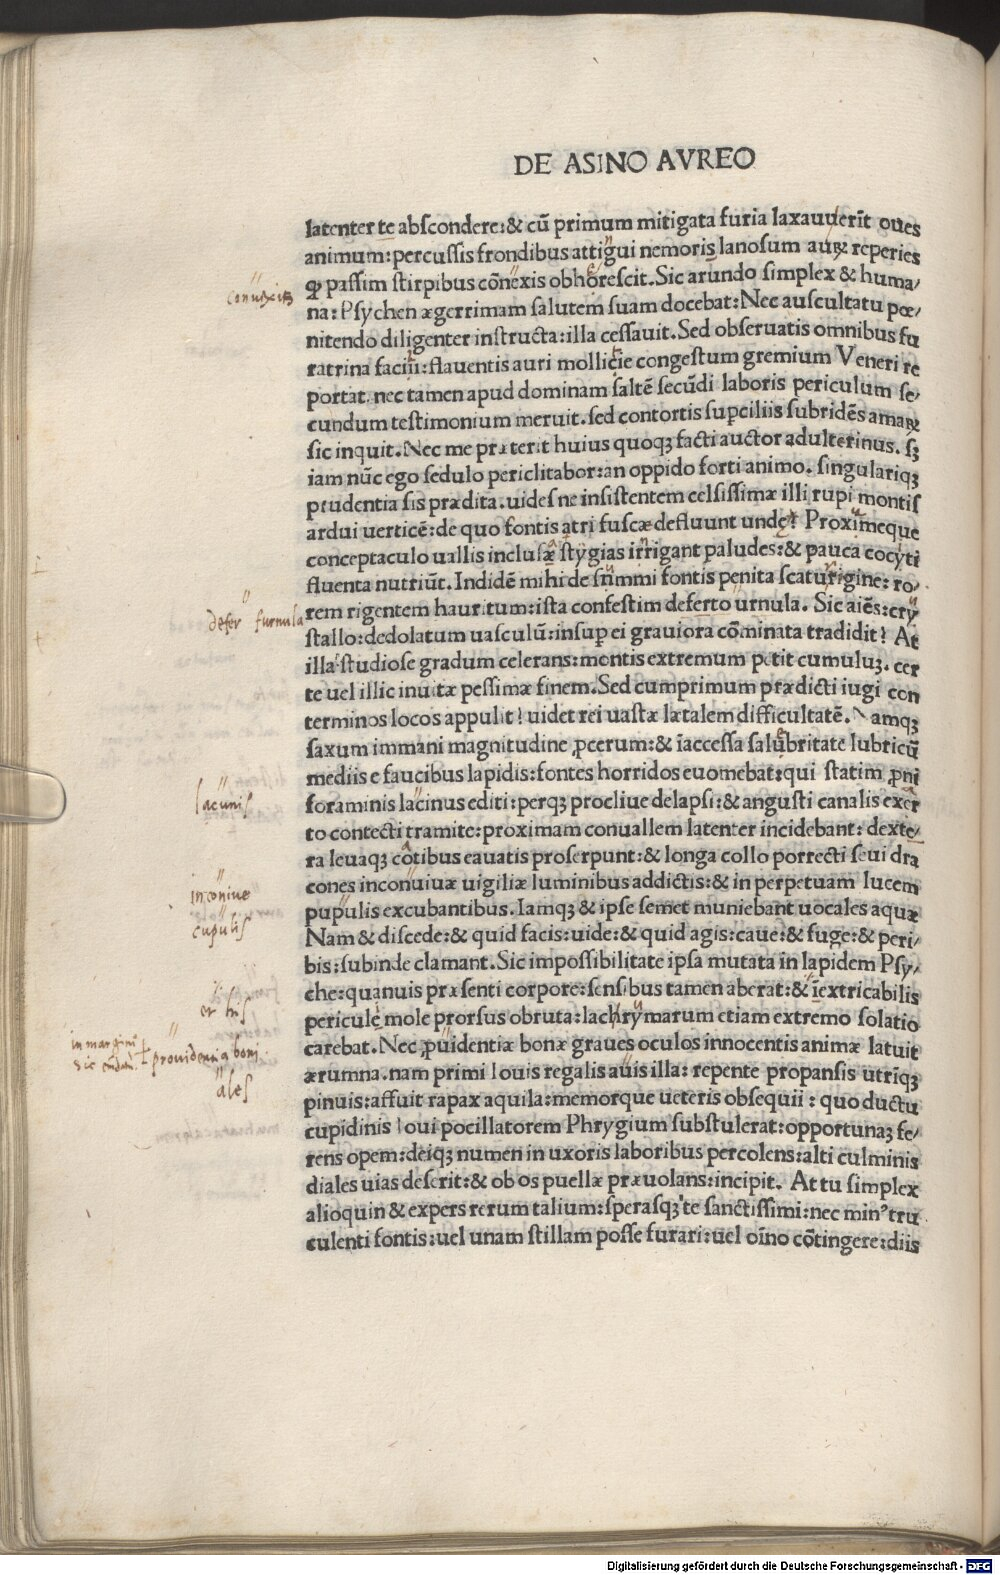 DE ASINO AVREO
latenter te abſcondere:& cū primum mitigata furia laxauuerīt oues
animum:percuſſis frondibus attigui nemoris lanoſum auꝝ reperies
ꝙ paſſim ſtirpibus cōnexis obhoreſcit.Sic arundo ſimplex & huma/
na:Pſychen ægerrimam ſalutem ſuam docebat:Nec auſcultatu pœ/
nitendo diligenter inſtructa:illa ceſſauit.Sed obſeruatis omnibus fu
ratrina facili:flauentis auri mollicie congeſtum gremium Veneri re
portat. nec tamen apud dominam ſaltē ſecūdi laboris periculum ſe/
cundum teſtimonium meruit.ſed contortis ſupciliis ſubridēs amaꝝ
ſic inquit.Nec me præterit huius quoqꝫ facti auctor adulterinus. ſꝫ
iam nūc ego ſedulo periclitabor:an oppido forti animo. ſingulariqꝫ
prudentia ſis prædita.uideſne inſiſtentem celſiſſimæ illi rupi montis
ardui uerticē:de quo fontis atri fuſcæ defluunt unde? Proximeque
conceptaculo uallis incluſæ ſtygias irrigant paludes:& pauca cocyti
fluenta nutriūt.Indidē mihi de ſummi fontis penita ſcaturigine:ro/
rem rigentem hauritum:iſta confeſtim deferto urnula. Sic aiēs:cry
ſtallo:dedolatum uaſculū:inſup ei grauiora cōminata tradidit? At
illa ſtudioſe gradum celerans:montis extremum petit cumuluꝫ. cer
te uel illic inuitæ peſſimæ finem.Sed cumprimum prædicti iugi con
terminos locos appulit? uidet rei uaſtæ lætalem difficultatē. Namqꝫ
ſaxum immani magnitudine ꝓcerum:& īacceſſa ſalubritate lubricū
mediis e faucibus lapidis:fontes horridos euomebat:qui ſtatim ꝓni
foraminis lacinus editi:perqꝫ procliue delapſi:& anguſti canalis exer
to contecti tramite:proximam conuallem latenter incidebant: dexte/
ra leuaqꝫ cotibus eauatis proſerpunt:& longa collo porrecti ſeui dra
cones inconuiuæ uigiliæ luminibus addictis:& in perpetuam lucem
pupulis excubantibus.Iamqꝫ & ipſe ſemet muniebant uocales aquæ
Nam & diſcede:& quid facis:uide:& quid agis:caue:& fuge:& peri/
bis:ſubinde clamant.Sic impoſſibilitate ipſa mutata in lapidem Pſy/
che:quanuis præſenti corpore:ſenſibus tamen aberat:& īextricabilis
periculi mole prorſus obruta:lachrymarum etiam extremo ſolatio
carebat.Nec ꝓuidentiæ bonæ graues oculos innocentis animæ latuit
ærumna.nam primi Iouis regalis auis illa: repente propanſis utriqꝫ
pinuis:affuit rapax aquila:memorque ueteris obſequii: quo ductu
cupidinis Ioui pocillatorem Phrygium ſubſtulerat:opportunaꝫ fe/
rens opem:deiqꝫ numen in uxoris laboribus percolens:alti culminis
diales uias deſerit:& ob os puellæ præuolans:incipit. At tu ſimplex
alioquin & expers rerum talium:ſperaſqꝫ te ſanctiſſimi:nec min⁹ tru
culenti fontis:uel unam ſtillam poſſe furari:uel oīno cōtingere:diis
defer
furnula
lacunis
inconiue
cupulis
er his
in margini
sic
prouidentia boni
ales
Digitalisierung gefördert durch die Deutsche Forschungsgemeinschaft - DFG